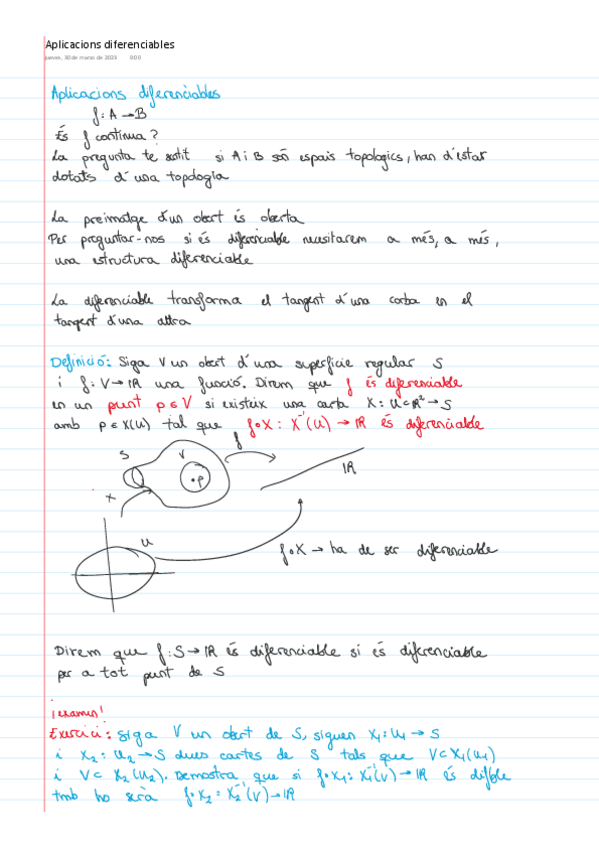 Aplicacions diferenciables
jueves, 30 de marzo de 2023 0:00
Aplicacions diferenciables
f: A → B
És f contínua?
La pregunta te sentit si A i B són espais topologics, han d'estar
dotats d'una topologia
La preimatge d'un obert és oberta
Per preguntar-nos si és diferenciable necesitarem a més, a més,
una estructura diferenciable
La diferenciable transforma el tangent d'una corba en el
tangent d'una altra
Definició: Siga V un obert d'una superfície regular S
i f: V → ℝ una funció. Direm que f és diferenciable
en un punt p ∈ V si existeix una carta X: U ⊂ ℝ² → S
amb p ∈ X(U) tal que f∘X : X⁻¹(U) → ℝ és diferenciable
f
S V
p
ℝ
X
U
f∘X → ha de ser diferenciable
Direm que f: S → ℝ és diferenciable si és diferenciable
per a tot punt de S
¡examen!
Exercici: Siga V un obert de S, siguen X₁: U₁ → S
i X₂: U₂ → S dues cartes de S tals que V ⊂ X₁(U₁)
i V ⊂ X₂(U₂). Demostra que si f∘X₁: X₁⁻¹(V) → ℝ és difble
tmb ho serà f∘X₂: X₂⁻¹(V) → ℝ